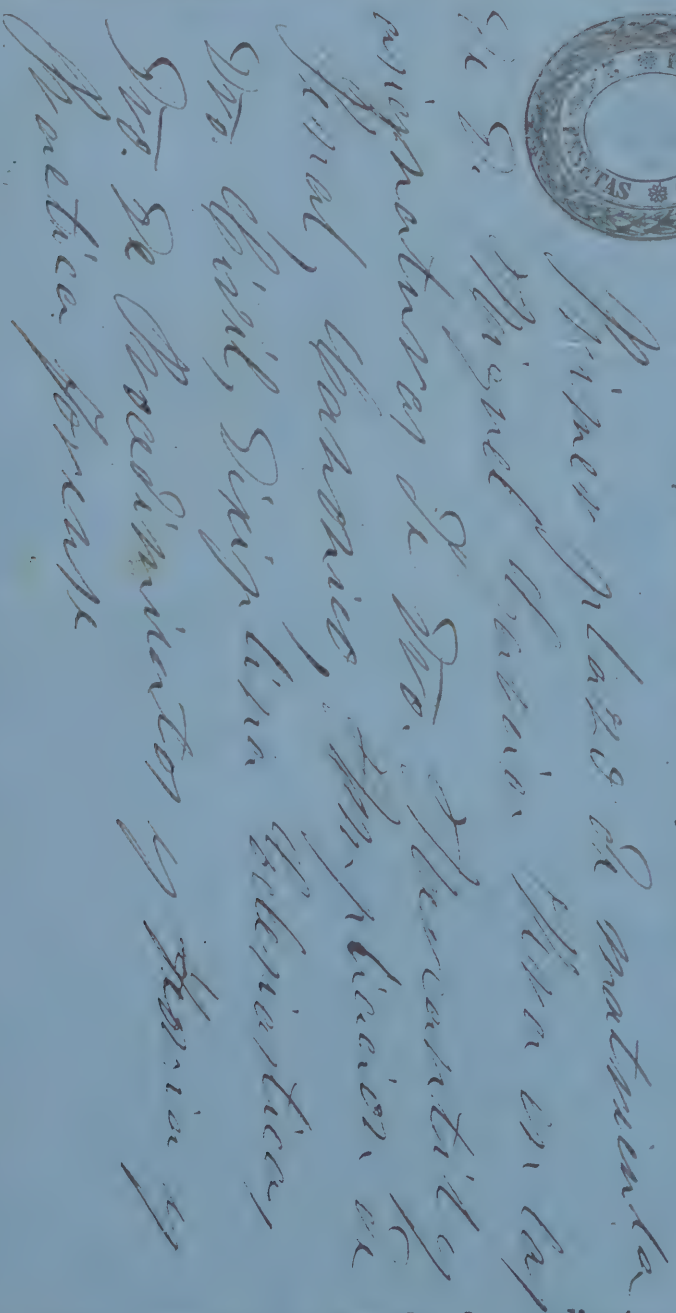 PESETAS
Primer plazo de matricula
de D. Miguel en las
asignaturas de Dro. Mercantil y
Penal, Canonico, Ampliacion de
Dro. Civil, Disciplina Eclesiastica,
Dro. de Procedimientos y Teoria y
Practica forense